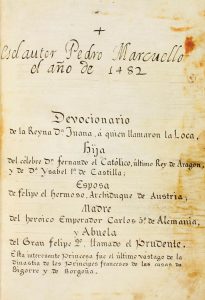 Es el autor Pedro Marcuello
el año de 1482
Devocionario
de la Reyna Dª Juana, á quien llamaron la Loca,
Hija
del célebre Dⁿ fernando el Católico, último Rey de Aragon,
y de Dª Ysabel 1ª de Castilla;
Esposa
de felipe el hermoso, Archiduque de Austria;
Madre
del heroico Emperador Carlos 5º de Alemania,
y Abuela
del Gran felipe 2º, llamado el Prudente.
Esta interesante Princesa fue el último vastago de la
Dinastia de los Principes franceses de las casas de
Bigorre y de Borgoña.